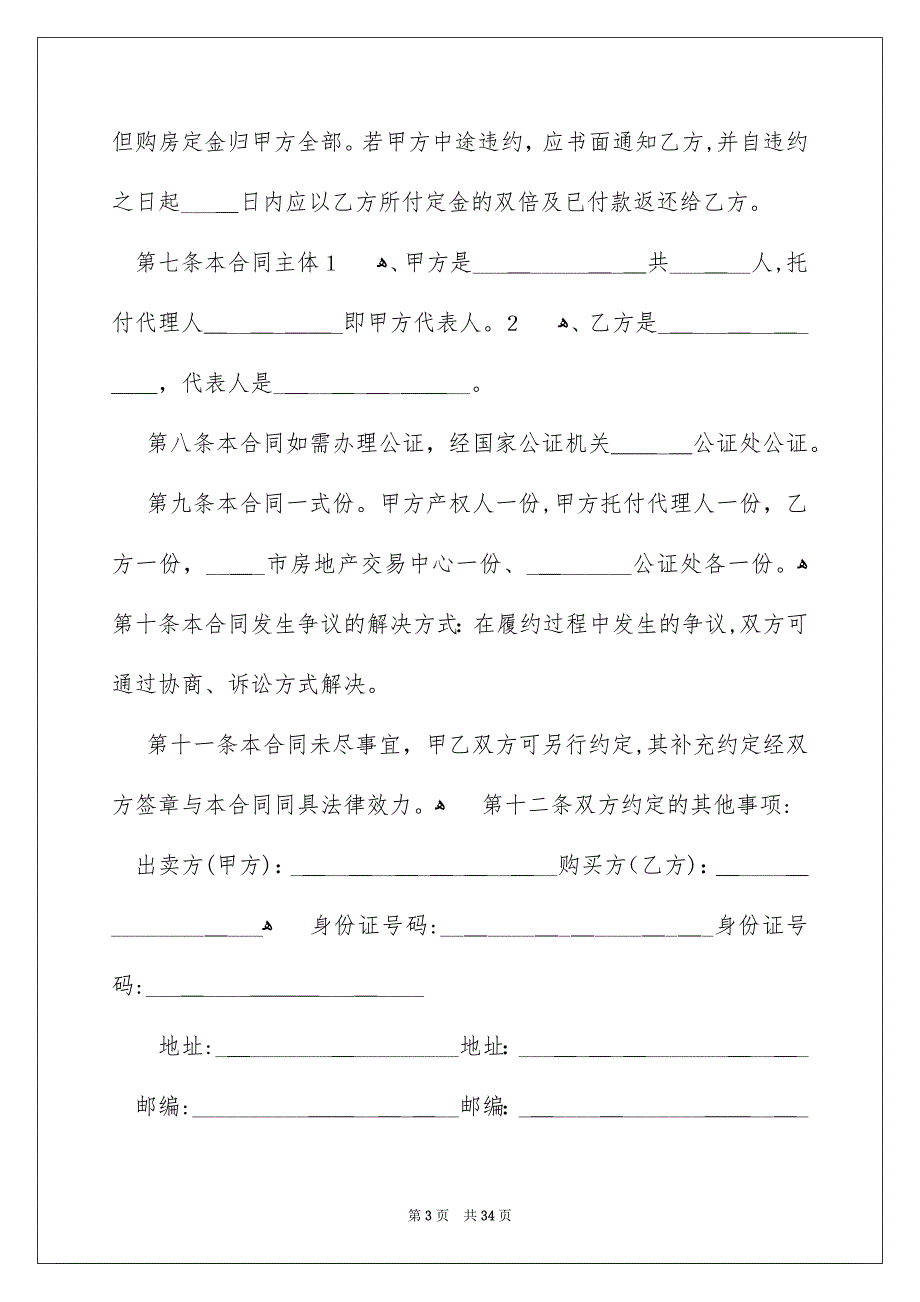 但购房定金归甲方全部。若甲方中途违约，应书面通知乙方,并自违约
之日起_____日内应以乙方所付定金的双倍及已付款返还给乙方。
第七条本合同主体1 ﻫ、甲方是_______________共_______人,托
付代理人____________即甲方代表人。2 ﻫ、乙方是_____________
____，代表人是_________________。
第八条本合同如需办理公证，经国家公证机关_______公证处公证。
第九条本合同一式份。甲方产权人一份,甲方托付代理人一份，乙
方一份，_____市房地产交易中心一份、_________公证处各一份。ﻫ
第十条本合同发生争议的解决方式：在履约过程中发生的争议,双方可
通过协商、诉讼方式解决。
第十一条本合同未尽事宜，甲乙双方可另行约定,其补充约定经双
方签章与本合同同具法律效力。ﻫ 第十二条双方约定的其他事项:
出卖方(甲方)：_______________________购买方(乙方)：________
_____________ﻫ 身份证号码:________________________身份证号
码:________________________
地址:_____________________地址：_________________________
邮编:_______________________邮编：_________________________
第 3 页 共 34 页